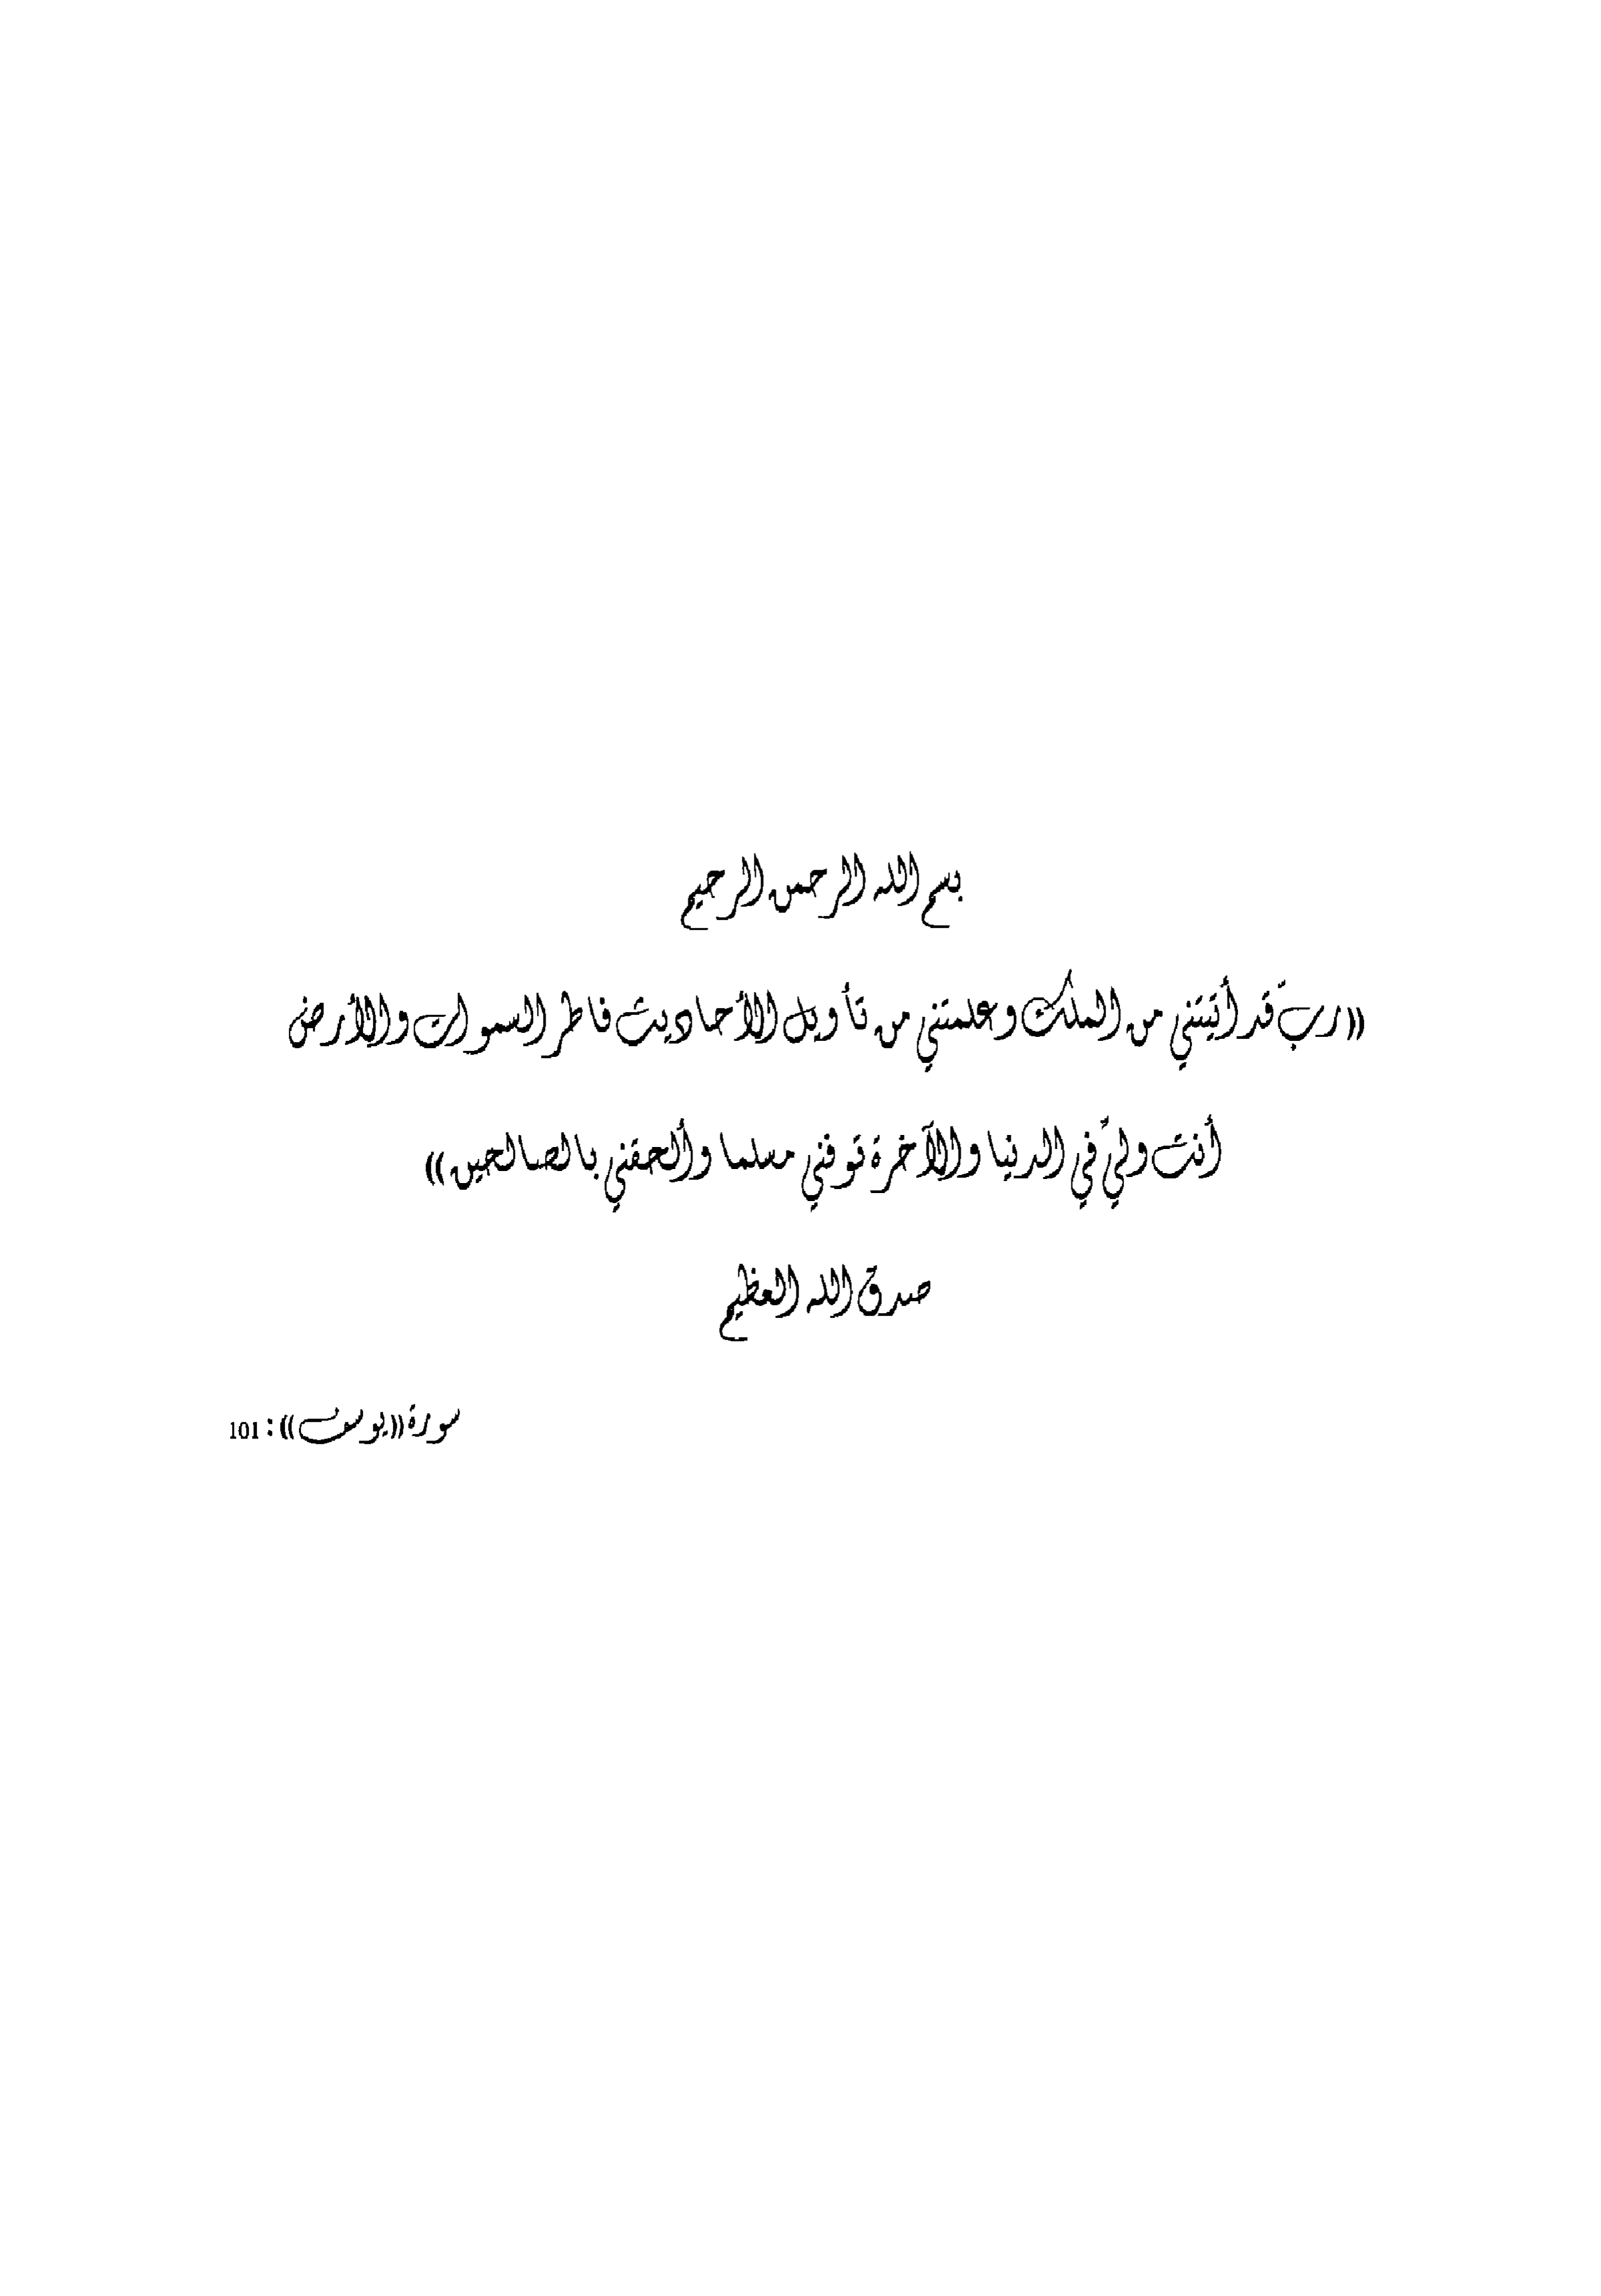 بسم الله الرحمن الرحيم
«ربّ قد أتيتني من الملك وعلمتني من تأويل الأحاديث فاطر السموات والأرض
أنت وليّ في الدنيا والآخرة توفني مسلما وألحقني بالصالحين»
صدق الله العظيم
سورة «يوسف»: 101